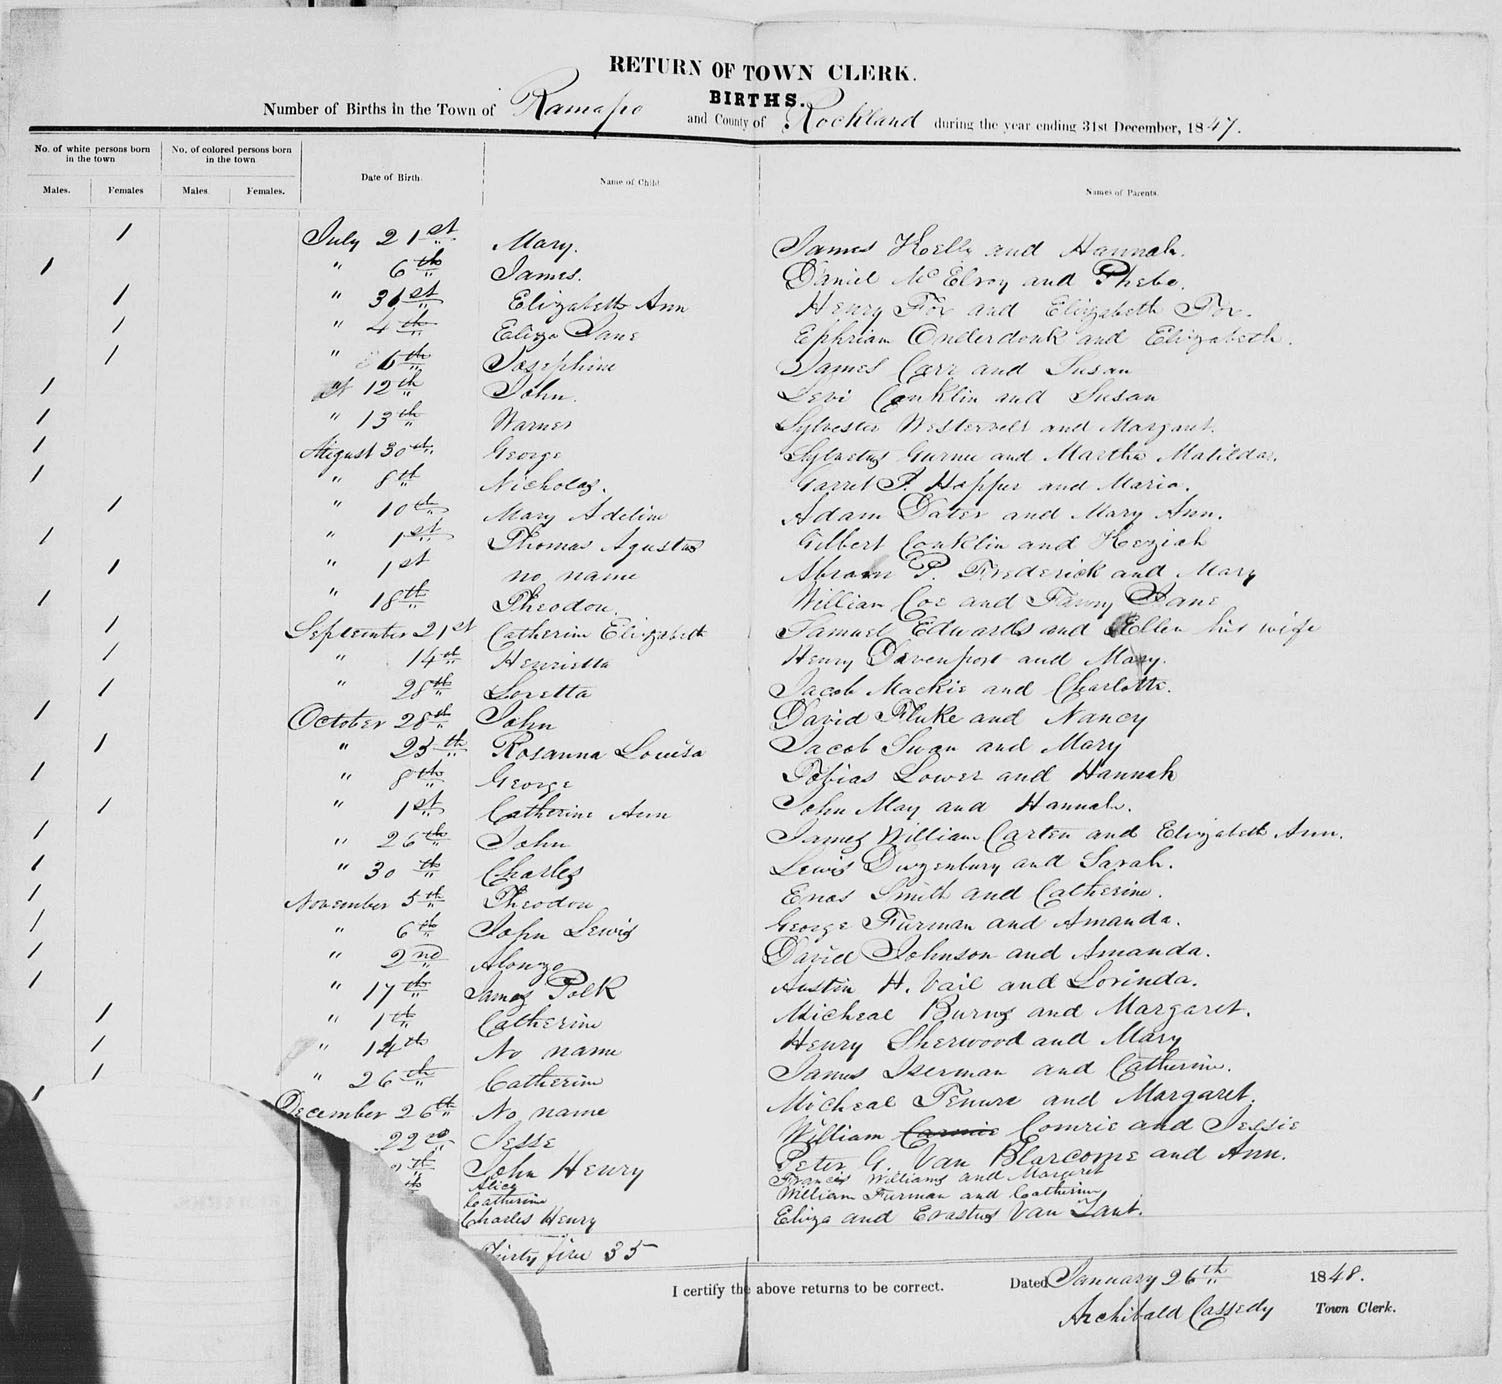 RETURN OF TOWN CLERK.
BIRTHS.
Number of Births in the Town of Ramapo and County of Rockland during the year ending 31st December, 1847.
No. of white persons born in the town No. of colored persons born in the town Date of Birth. Name of Child Names of Parents.
Males. Females Males. Females.
1 July 21st Mary. James Kelly and Hannah.
1 " 6th James. Daniel McElroy and Phebe.
1 " 31st Elizabeth Ann Henry Fox and Elizabeth Fox.
1 " 4th Eliza Jane Ephriam Onderdonk and Elizabeth.
1 " 6th Josephine James Carr and Susan
1 " 12th John. Levi Conklin and Susan
1 " 13th Warner Sylvester Westervelt and Margaret.
1 August 30th George Sylvetus Gurnee and Martha Matilda.
1 " 8th Nicholas. Garret P. Hopper and Maria.
1 " 10th Mary Adeline Adam Dater and Mary Ann.
1 " 1st Thomas Agustus Gilbert Conklin and Keziah
1 " 1st no name Abram P. Frederick and Mary
1 " 18th Theodore. William Coe and Fanny Jane
1 September 21st Catherine Elizabeth Samuel Edwards and Ellen his wife
1 " 14th Henrietta Henry Davenport and Mary.
1 " 28th Loretta Jacob Mackie and Charlotte.
1 October 28th John David Fluke and Nancy
1 " 25th Rosanna Louisa Jacob Swan and Mary
1 " 8th George Tobias Lower and Hannah
1 " 1st Catherine Ann John May and Hannah.
1 " 26th John James William Carten and Elizabeth Ann.
1 " 30th Charles Lewis Duzenbury and Sarah.
1 November 5th Theodore Enos Smith and Catherine.
1 " 6th John Lewis George Furman and Amanda.
1 " 2nd Alonzo David Johnson and Amanda.
1 " 17th James Polk Austin H. Vail and Lorinda.
1 " 1th Catherine Micheal Burns and Margaret.
1 " 14th No name Henry Sherwood and Mary
1 " 26th Catherine James Iserman and Catherine.
1 December 26th No name Micheal Tenure and Margaret.
22 Jesse William Comrie and Jessie
th John Henry Peter G. Van Blarcome and Ann.
th Alice Francis Williams and Margaret
Catherine William Furman and Catherine
Charles Henry Eliza and Erastus Van Zant.
Thirty five 35
I certify the above returns to be correct. Dated January 26th 1848.
Archibald Cassedy Town Clerk.